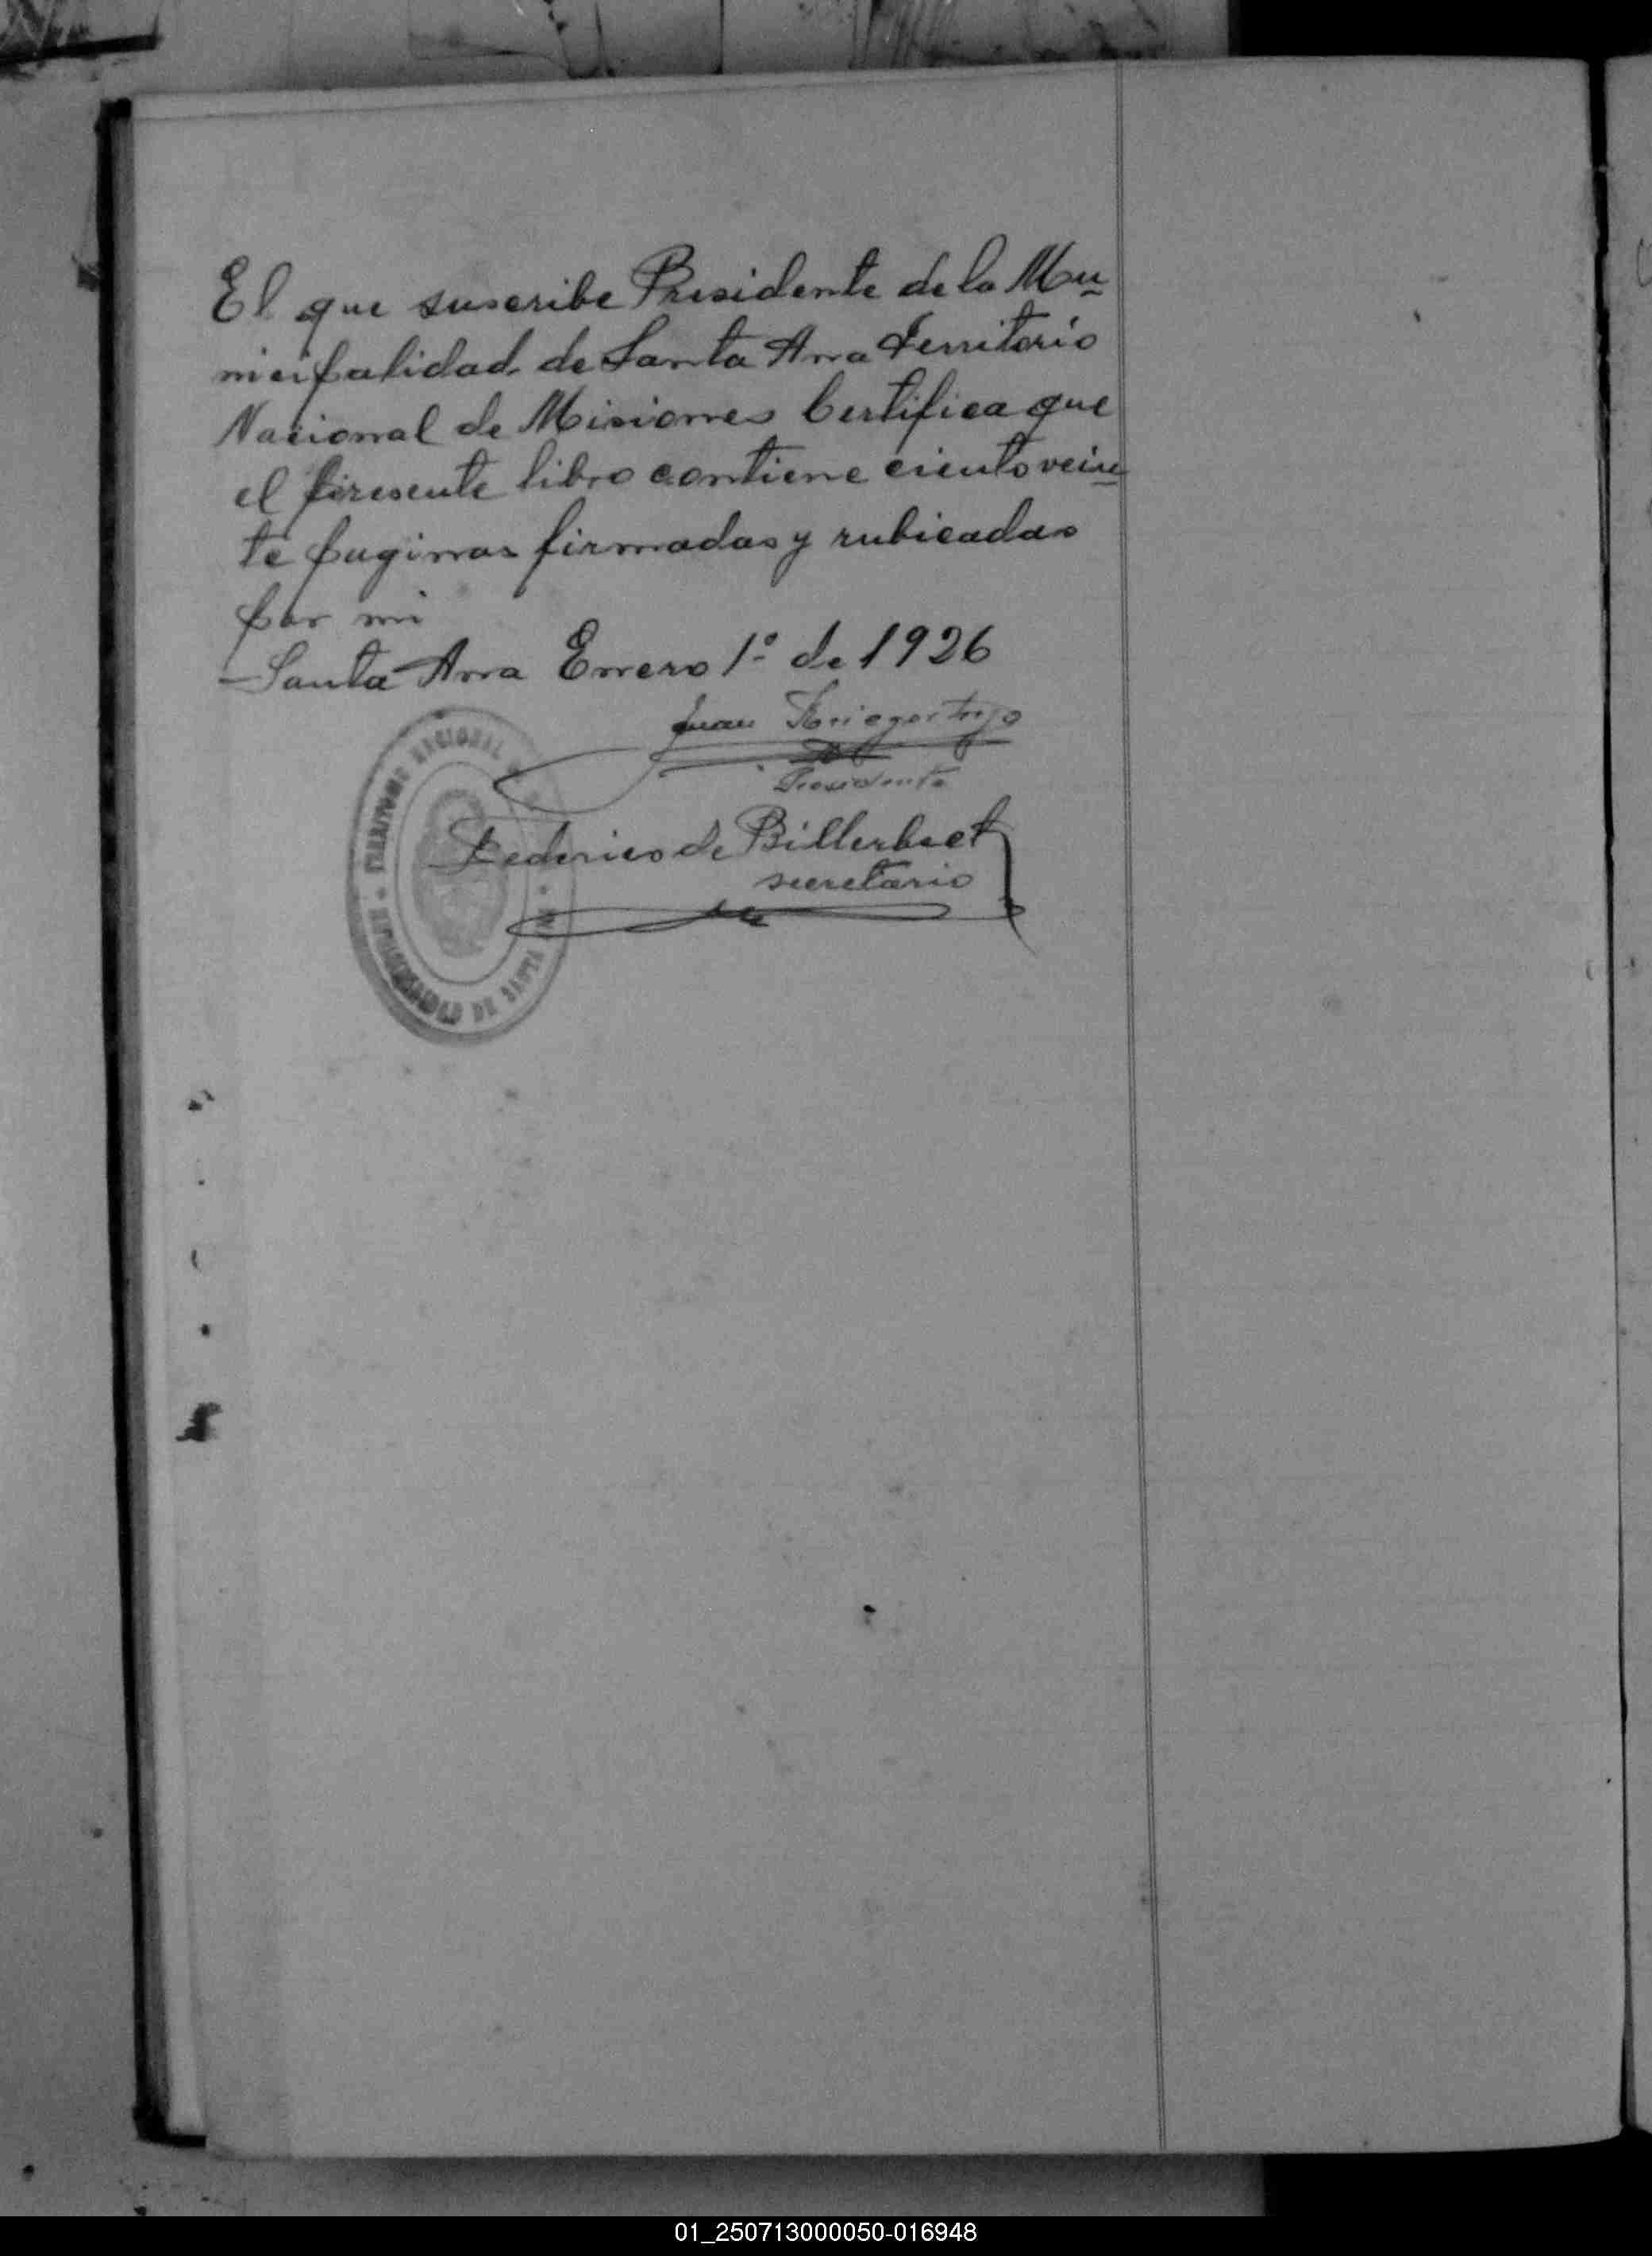 El que suscribe Presidente de la Mu
nicipalidad de Santa Ana Territorio
Nacional de Misiones Certifica que
el presente libro contiene ciento vein
te paginas firmadas y rubicadas
por mi
Santa Ana Enero 1º de 1926
Juan
Presidente
Federico de Billerbeck
secretario
TERRITORIO NACIONAL
MUNICIPALIDAD DE SANTA ANA
01_250713000050-016948